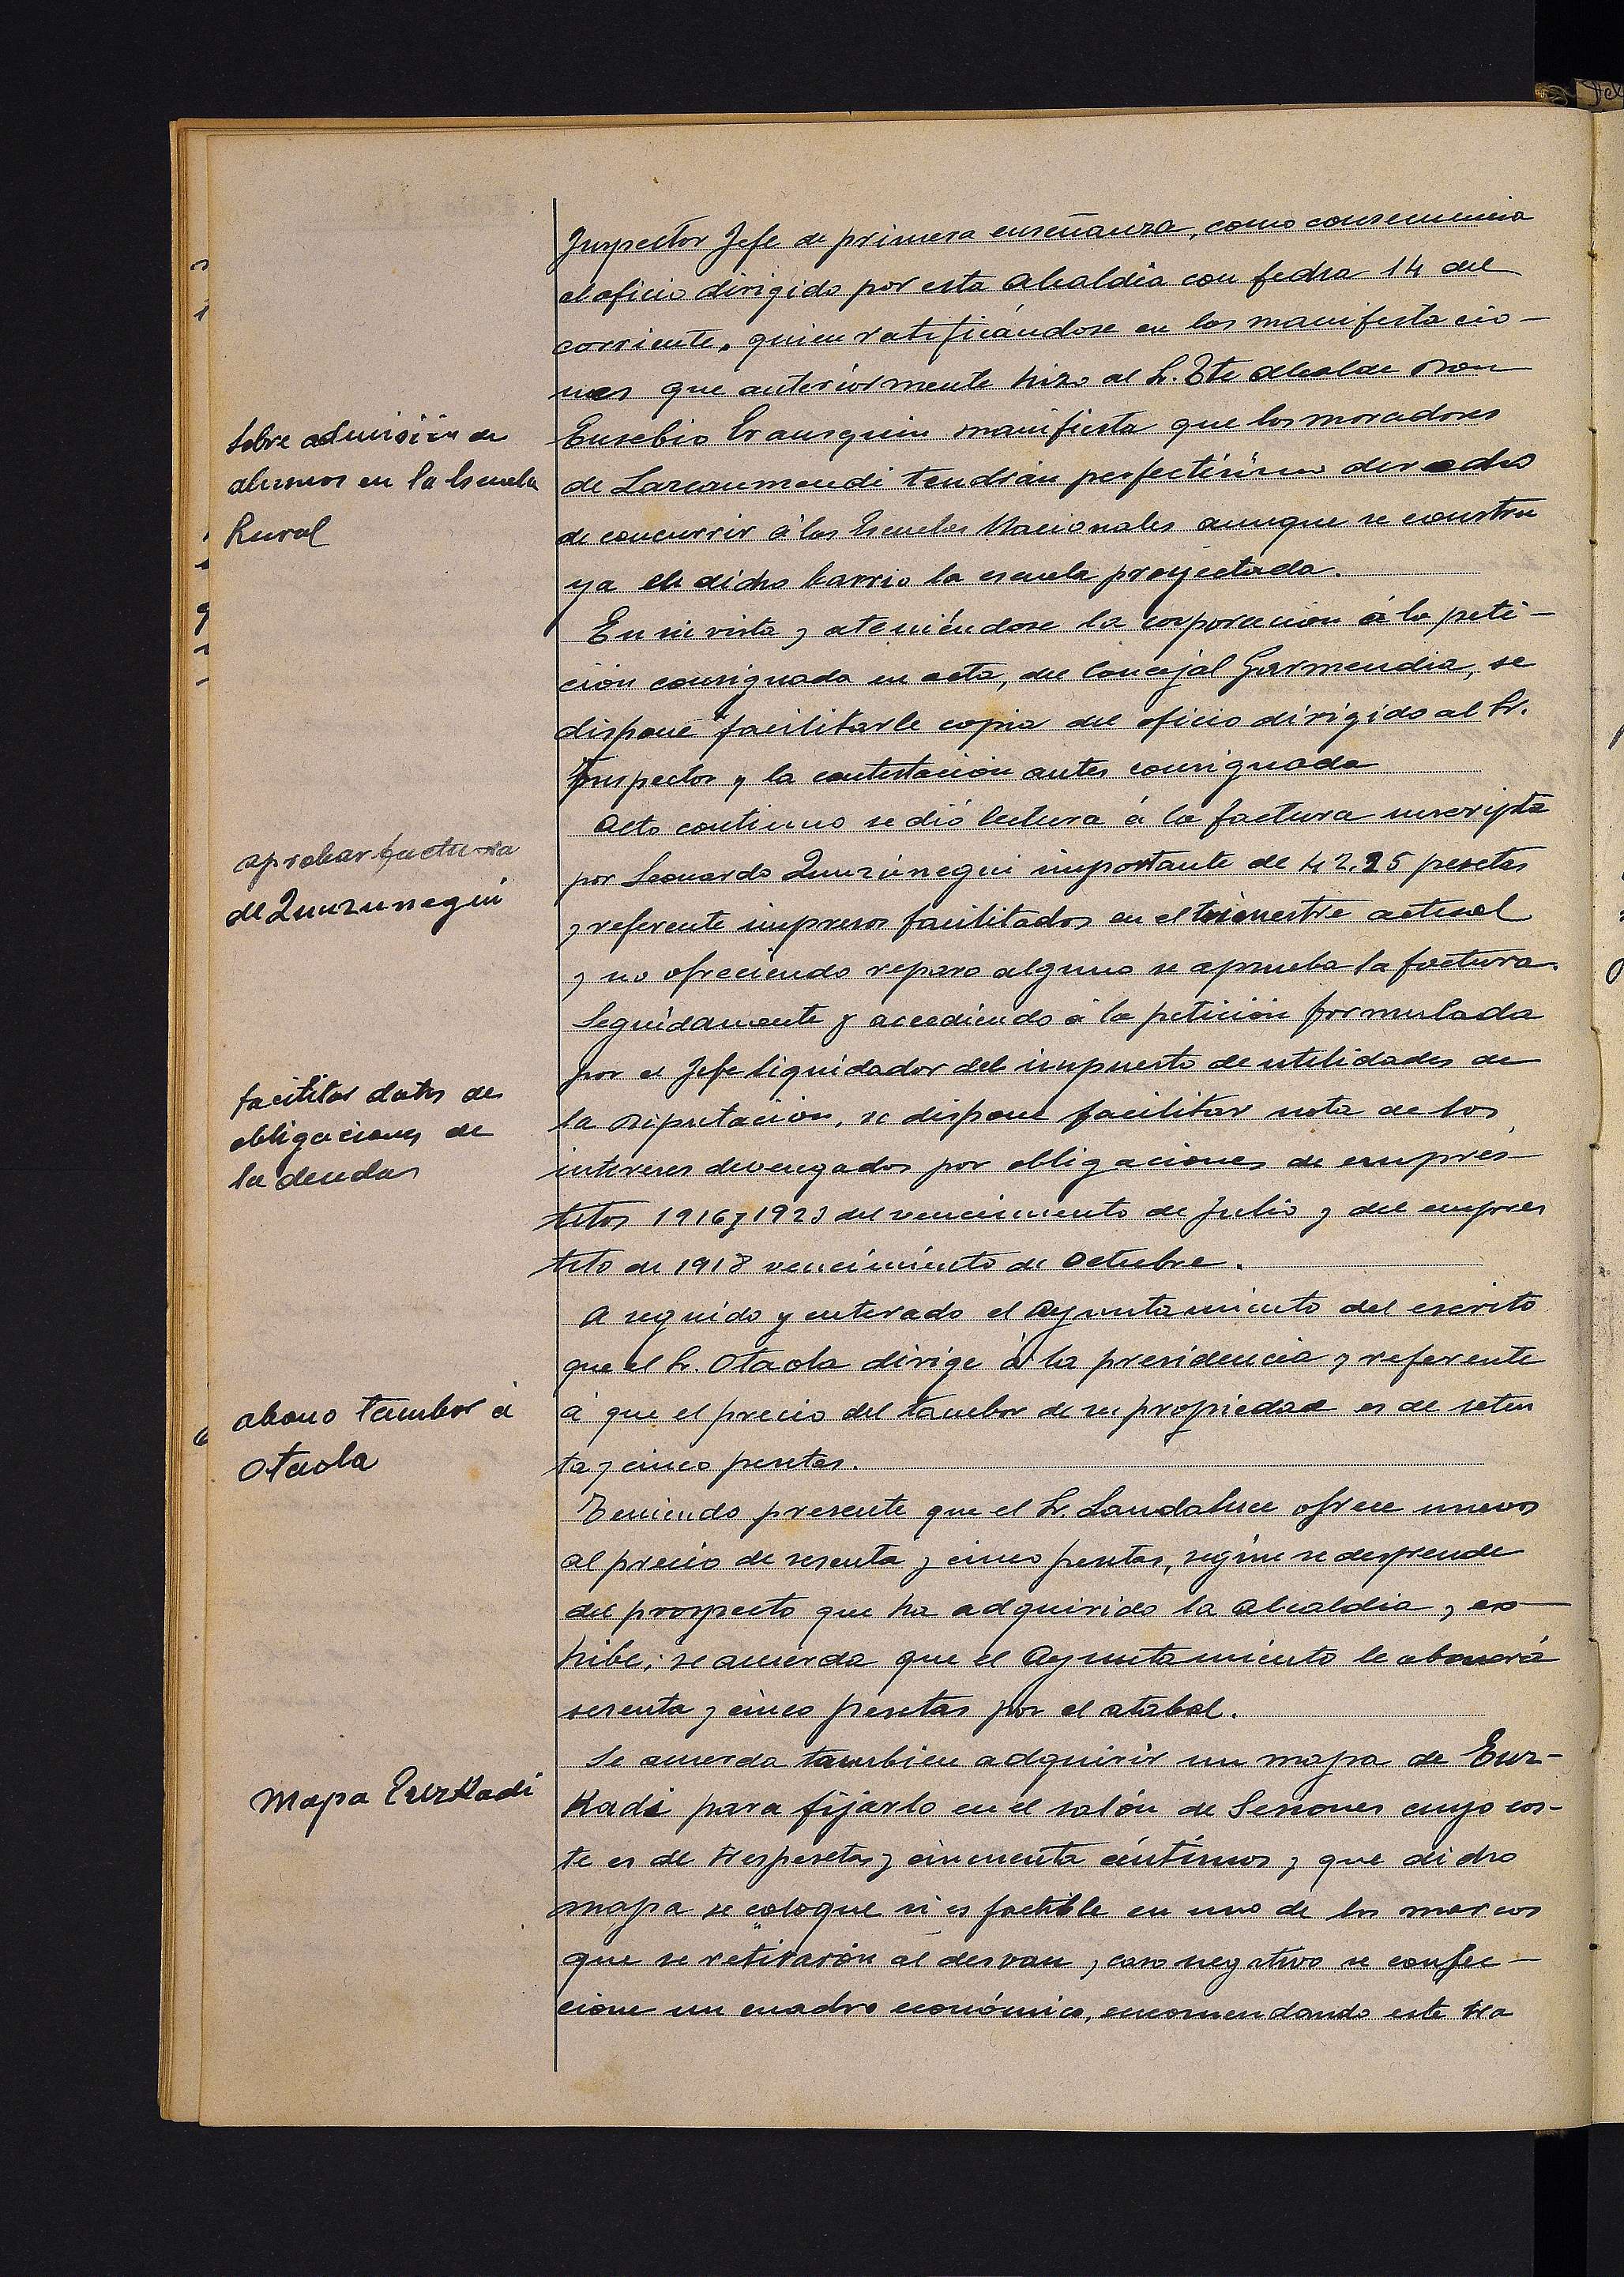 Inspector Jefe de primera enseñanza, como consecuencia
el oficio dirigido por esta Alcaldia con fecha 14 del
corriente, quien ratificándose en las manifestacio-
nes que anteriormente hizo al Sr. Tte Alcalde Don
Sobre admisión de
alumnos en la Escuela
Rural
Eusebio Erausquin manifiesta que los moradores
de Lazcaumendi tendrán perfectísimo derecho
de concurrir á las Escuelas Nacionales aunque se constru
ya en dicho barrio la escuela proyectada.
En su vista y ateniéndose la corporación á la peti-
ción consignada en acta, del Concejal Garmendia, se
dispone facilitarle copia del oficio dirigido al Sr.
Inspector y la contestación antes consignada
aprobar factura
de Zunzunegui
Acto continuo se dió lectura á la factura suscripta
por Leonardo Zunzunegui importante de 42.25 pesetas
y referente impresos facilitados en el trimestre actual
y no ofreciendo reparo alguno se aprueba la factura.
facilitar datos de
obligaciones de
la deuda
Seguidamente y accediendo á la petición formulada
por el Jefe liquidador del impuesto de utilidades de
la Diputación, se dispone facilitar nota de los
intereses devengados por obligaciones de emprés-
titos 1916 y 1923 del vencimiento de Julio y del emprés
tito de 1918 vencimiento de Octubre.
abono tambor á
Otaola
A seguido y enterado el Ayuntamiento del escrito
que el Sr. Otaola dirige á la presidencia y referente
á que el precio del tambor de su propiedad es de seten
ta y cinco pesetas.
Teniendo presente que el Sr. Landaluce ofrece nuevos
al precio de sesenta y cinco pesetas, según se desprende
del prospecto que ha adquirido la Alcaldia y ex-
hibe; se acuerda que el Ayuntamiento le abonará
sesenta y cinco pesetas por el atabal.
Mapa Euzkadi
Se acuerda tambien adquirir un mapa de Euz-
Kadi para fijarlo en el salón de Sesiones cuyo cos-
te es de tres pesetas y cincuenta céntimos y que dicho
mapa se coloque si es factible en uno de los marcos
que se retirarón al desvan y caso negativo se confec-
cione un cuadro económico, encomendando este tra